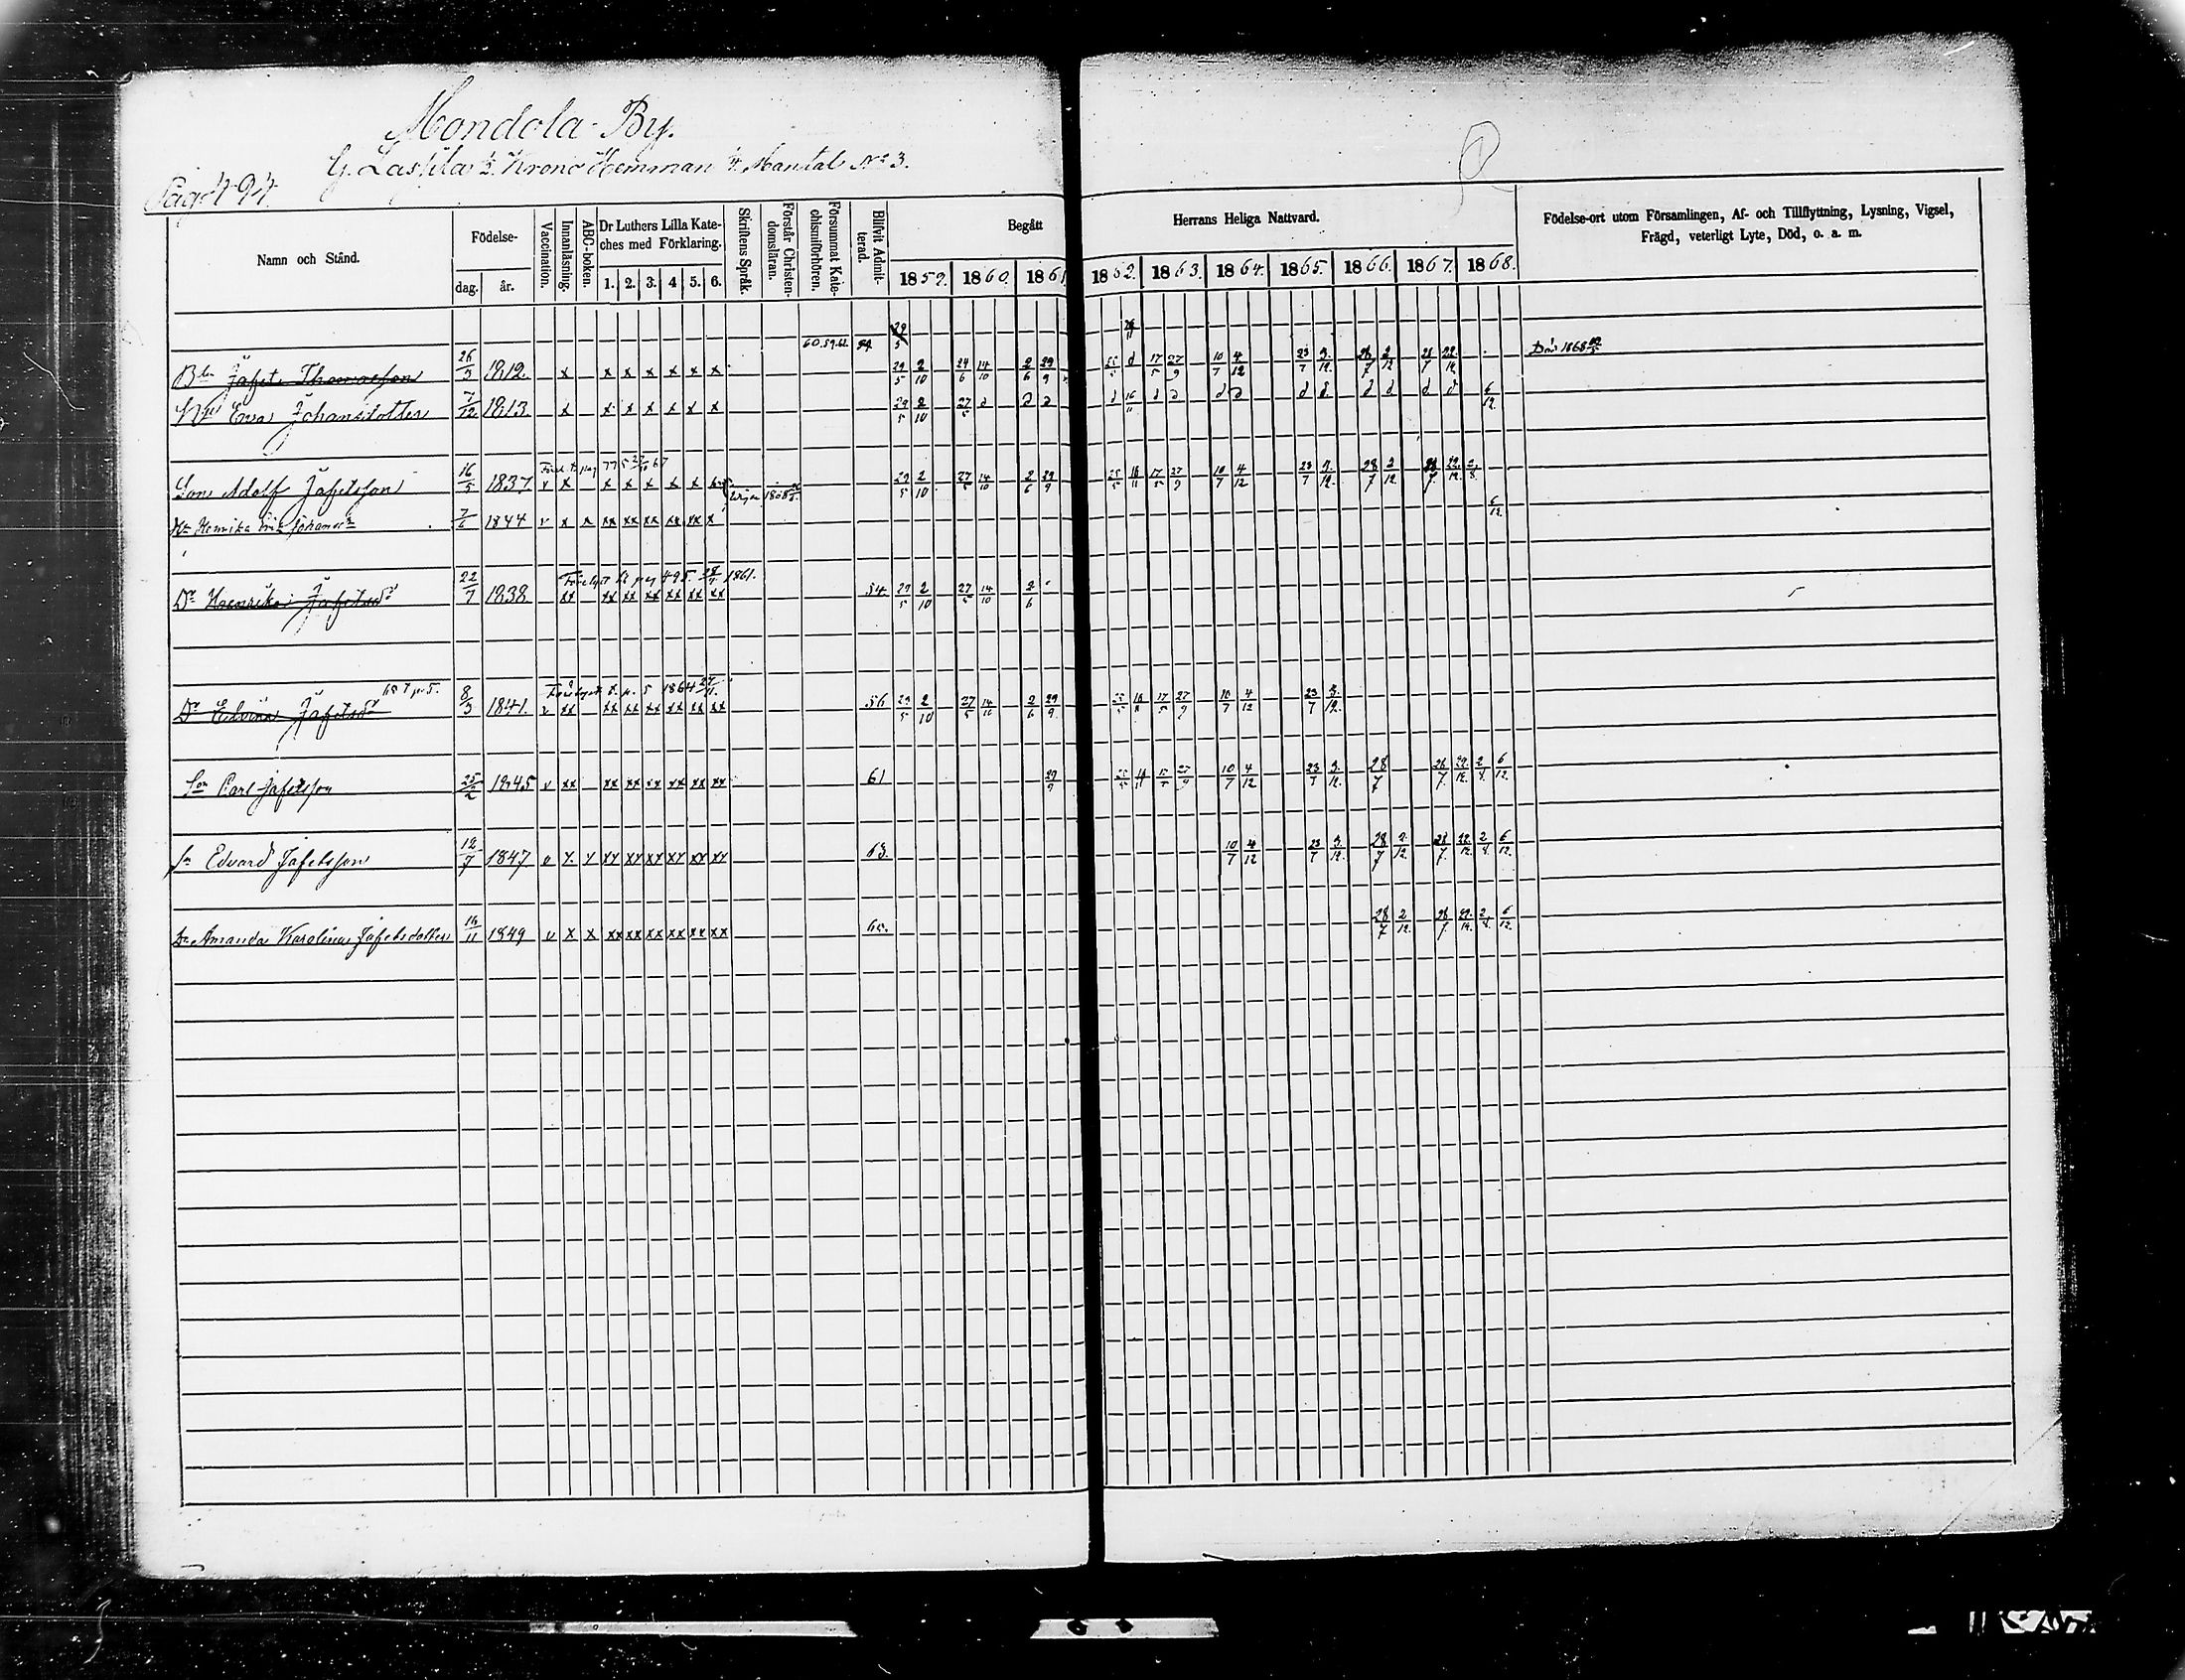 Mondola By.
G. Lassila ½ Krono Hemman ¼ Mantal No 3.
Pag. 494.
Namn och Stånd.
Födelse-
dag. år.
Vaccination.
Innanläsning.
ABC-boken.
Dr Luthers Lilla Kate-
ches med Förklaring.
1. 2. 3. 4 5. 6.
Skriftens Språk.
Förstår Christen-
domsläran.
Försummat Kate-
chismiförhören.
Blifvit Admit-
terad.
Begått
Herrans Heliga Nattvard.
1859. 1860. 1861 1862. 1863. 1864. 1865. 1866. 1867. 1868.
Födelse-ort utom Församlingen, Af- och Tillflyttning, Lysning, Vigsel,
Frägd, veterligt Lyte, Död, o. a. m.
60.59.62.
Jafet Thomasson 26/3 1812. x x x x x x x 29/5 2/10 24/6 14/10 2/6 29/9 25/5 d 17/5 27/9 10/7 4/12 23/7 3/12 28/7 2/12 28/7 22/12 Död 1868
Eva Johansdotter 7/12 1813 x x x x x x x 29/5 2/10 27/5 d d d d 16/11 d d d d d d d d d d 6/12
Son Adolf Jafetsson 16/5 1837 v x x x x x x 29/5 2/10 27/5 14/10 2/6 29/9 25/5 16/11 17/5 27/9 10/7 4/12 23/7 3/12 28/7 2/12 28/7 22/12 2/8
Henrika 7/6 1844 v x x xx xx xx xx xx x 6/12
Förelyst 28/7 1861.
Dr Henrika Jafetsdr 22/7 1838 xx xx xx xx xx xx xx 54 29/5 2/10 27/5 14/10 2/6
1864
Dr Elvina Jafetsdr 8/3 1841. v xx xx xx xx xx xx xx 56 29/5 2/10 27/5 14/10 2/6 29/9 25/5 16/11 17/5 27/9 10/7 4/12 23/7 3/12
Son Carl Jafetsson 25/2 1845 v xx xx xx xx xx xx xx 61 29/9 25/5 16/11 17/5 27/9 10/7 4/12 23/7 3/12 28/7 28/7 22/12 2/8 6/12
Sn Edvard Jafetsson 12/7 1847 v x x xx xx xx xx xx xx 63. 10/7 4/12 23/7 3/12 28/7 2/12 28/7 22/12 2/8 6/12
Dr Amanda Karolina Jafetsdotter 16/11 1849 v x x xx xx xx xx xx xx 65. 28/7 2/12 28/7 22/12 2/8 6/12